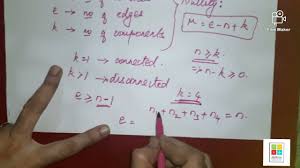 e → no of edges
k → no of components
Nullity:
μ = e - n + k
k = 1 → connected.
n ≥ k.
k > 1 → disconnected
e ≥ n-1
k = 4
e =
n₁ + n₂ + n₃ + n₄ = n.